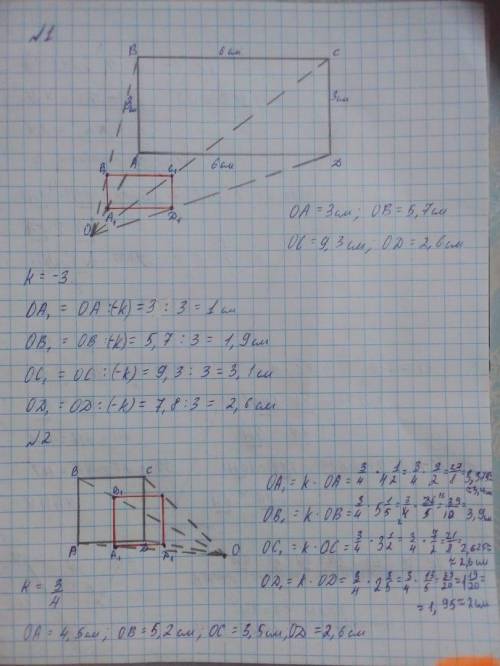 №1
B 6см C
3см 3см
A 6см D
B₁ C₁
A₁ D₁
O
OA = 3см; OB = 5,7см
OC = 9,3см, OD = 2,6см
k = -3
OA₁ = OA :(-k) = 3 : 3 = 1см
OB₁ = OB :(-k) = 5,7 : 3 = 1,9см
OC₁ = OC : (-k) = 9,3 : 3 = 3,1см
OD₁ = OD : (-k) = 7,8 : 3 = 2,6см
№2
B C
B₁
A A₁ D D₁ O
OA₁ = k · OA = 3/4 · 4 1/2 = 3/4 · 9/2 = 27/8 = 3,375 ≈ 3,4см
OB₁ = k · OB = 3/4 · 5 1/5 = 3/4 · 26/5 = 39/10 = 3,9см
OC₁ = k · OC = 3/4 · 3 1/2 = 3/4 · 7/2 = 21/8 = 2,625 = ≈ 2,6см
OD₁ = k · OD = 3/4 · 2 3/5 = 3/4 · 13/5 = 39/20 = 1 19/20 =
= 1,95 ≈ 2см
k = 3/4
OA = 4,5см; OB = 5,2см; OC = 3,5см, OD = 2,6см